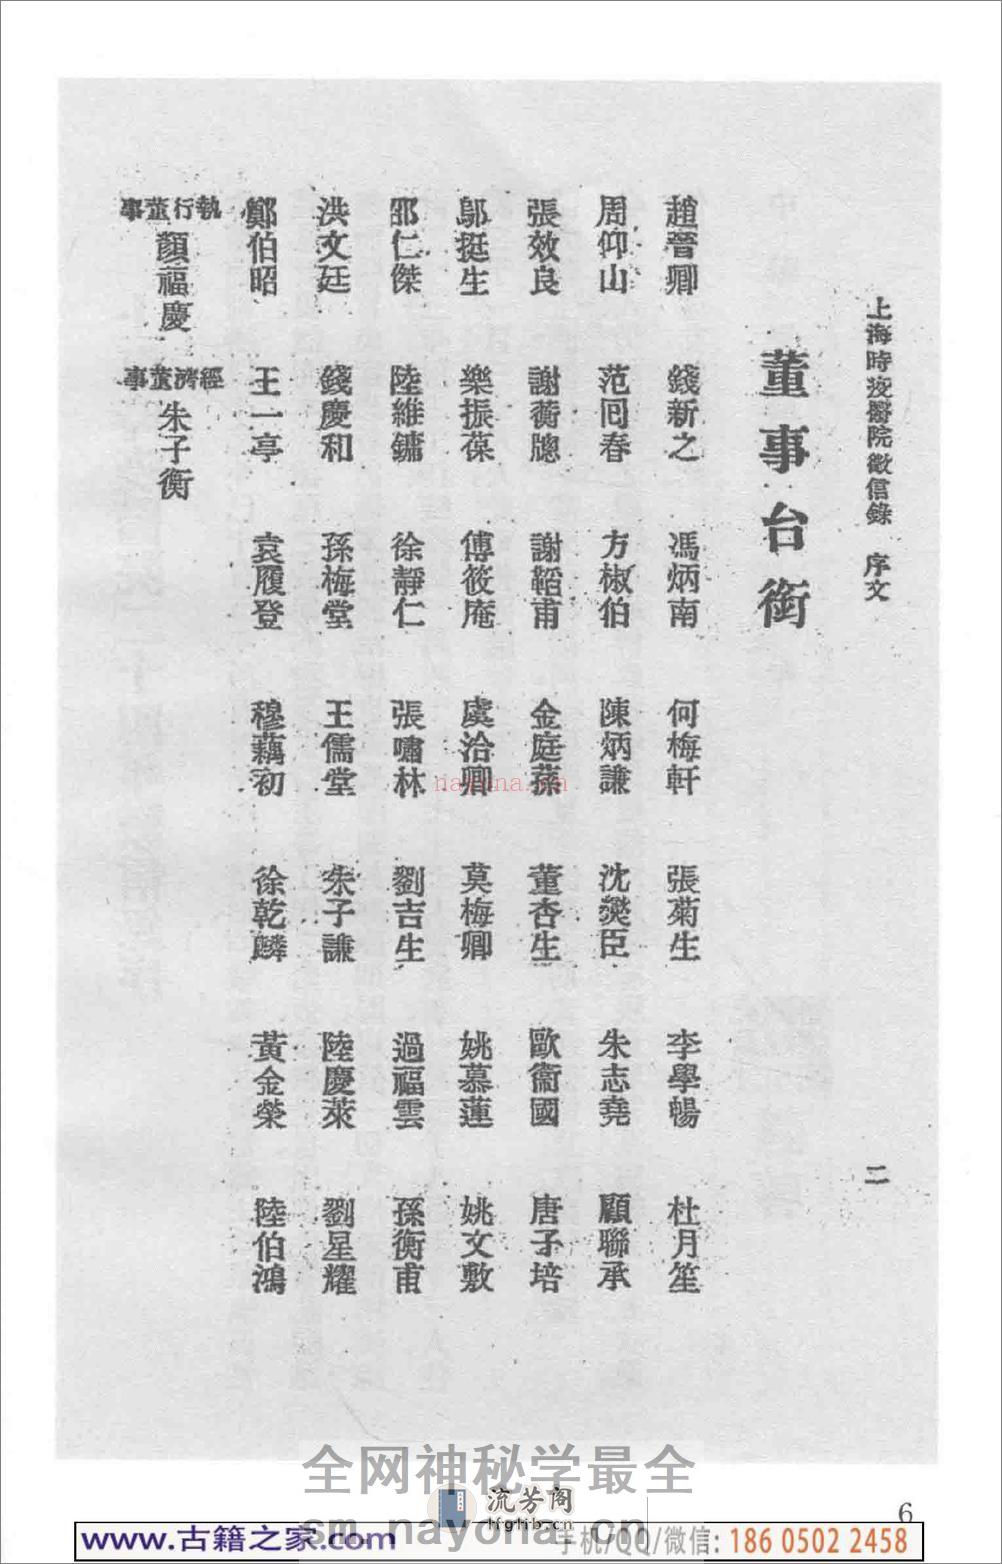 上海時疫醫院徵信錄 序文 二
董事台銜
趙晉卿 錢新之 馮炳南 何梅軒 張菊生 李學暢 杜月笙
周仰山 范回春 方椒伯 陳炳謙 沈燮臣 朱志堯 顧聯承
張效良 謝蘅牕 謝韜甫 金庭蓀 董杏生 歐衞國 唐子培
鄔挺生 樂振葆 傅筱庵 虞洽卿 莫梅卿 姚慕蓮 姚文敷
邵仁傑 陸維鏞 徐靜仁 張嘯林 劉吉生 過福雲 孫衡甫
洪文廷 錢慶和 孫梅堂 王儒堂 朱子謙 陸慶萊 劉星耀
鄭伯昭 王一亭 袁履登 穆藕初 徐乾麟 黃金榮 陸伯鴻
執行董事 顏福慶 經濟董事 朱子衡
nayona.cn
全网神秘学最全
流芳阁
lfglib.cn
sm.nayona.cn
6
www.古籍之家.com
手机/QQ/微信: 186 0502 2458